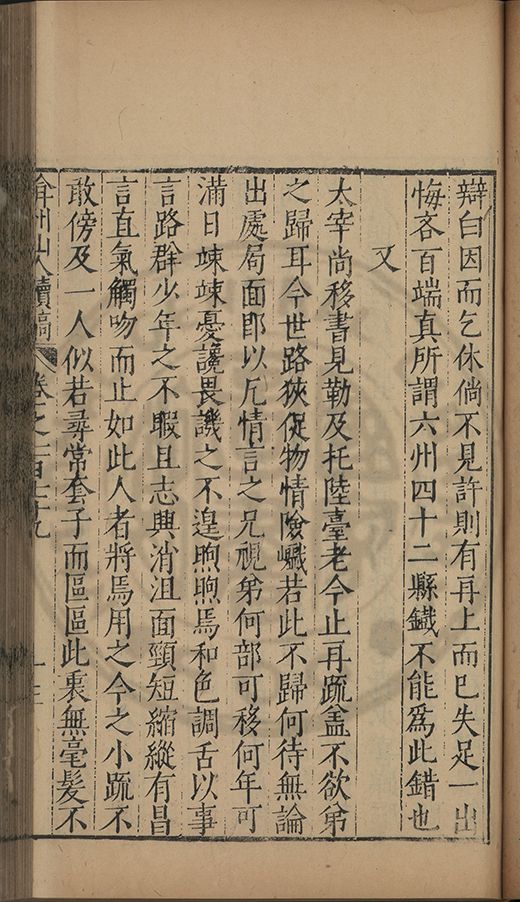 辯白因而乞休倘不見許則有再上而已失足一出
悔吝百端真所謂六州四十二縣鐵不能爲此錯也
又
太宰尚移書見勒及托陸臺老令止再疏盖不欲弟
之歸耳今世路狹促物情險巇若此不歸何待無論
出處局面卽以凢情言之兄視弟何部可移何年可
滿日竦竦憂讒畏譏之不遑煦煦焉和色調舌以事
言路群少年之不暇且志興消沮面頸短縮縱有昌
言直氣觸吻而止如此人者將焉用之今之小疏不
敢傍及一人似若尋常套子而區區此裏無毫髮不
弇州山人續稿 卷之一百七十九